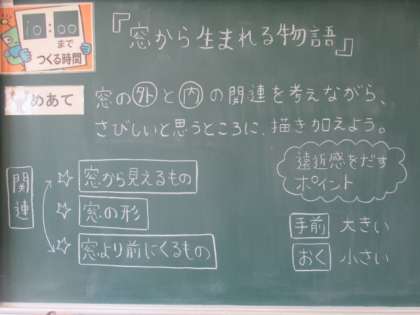 10:00
まで
つくる時間
『窓から生まれる物語』
めあて
窓の外と内の関連を考えながら、
さびしいと思うところに、描き加えよう。
関連
☆ 窓から見えるもの
☆ 窓の形
☆ 窓より前にくるもの
遠近感をだす
ポイント
手前 大きい
おく 小さい